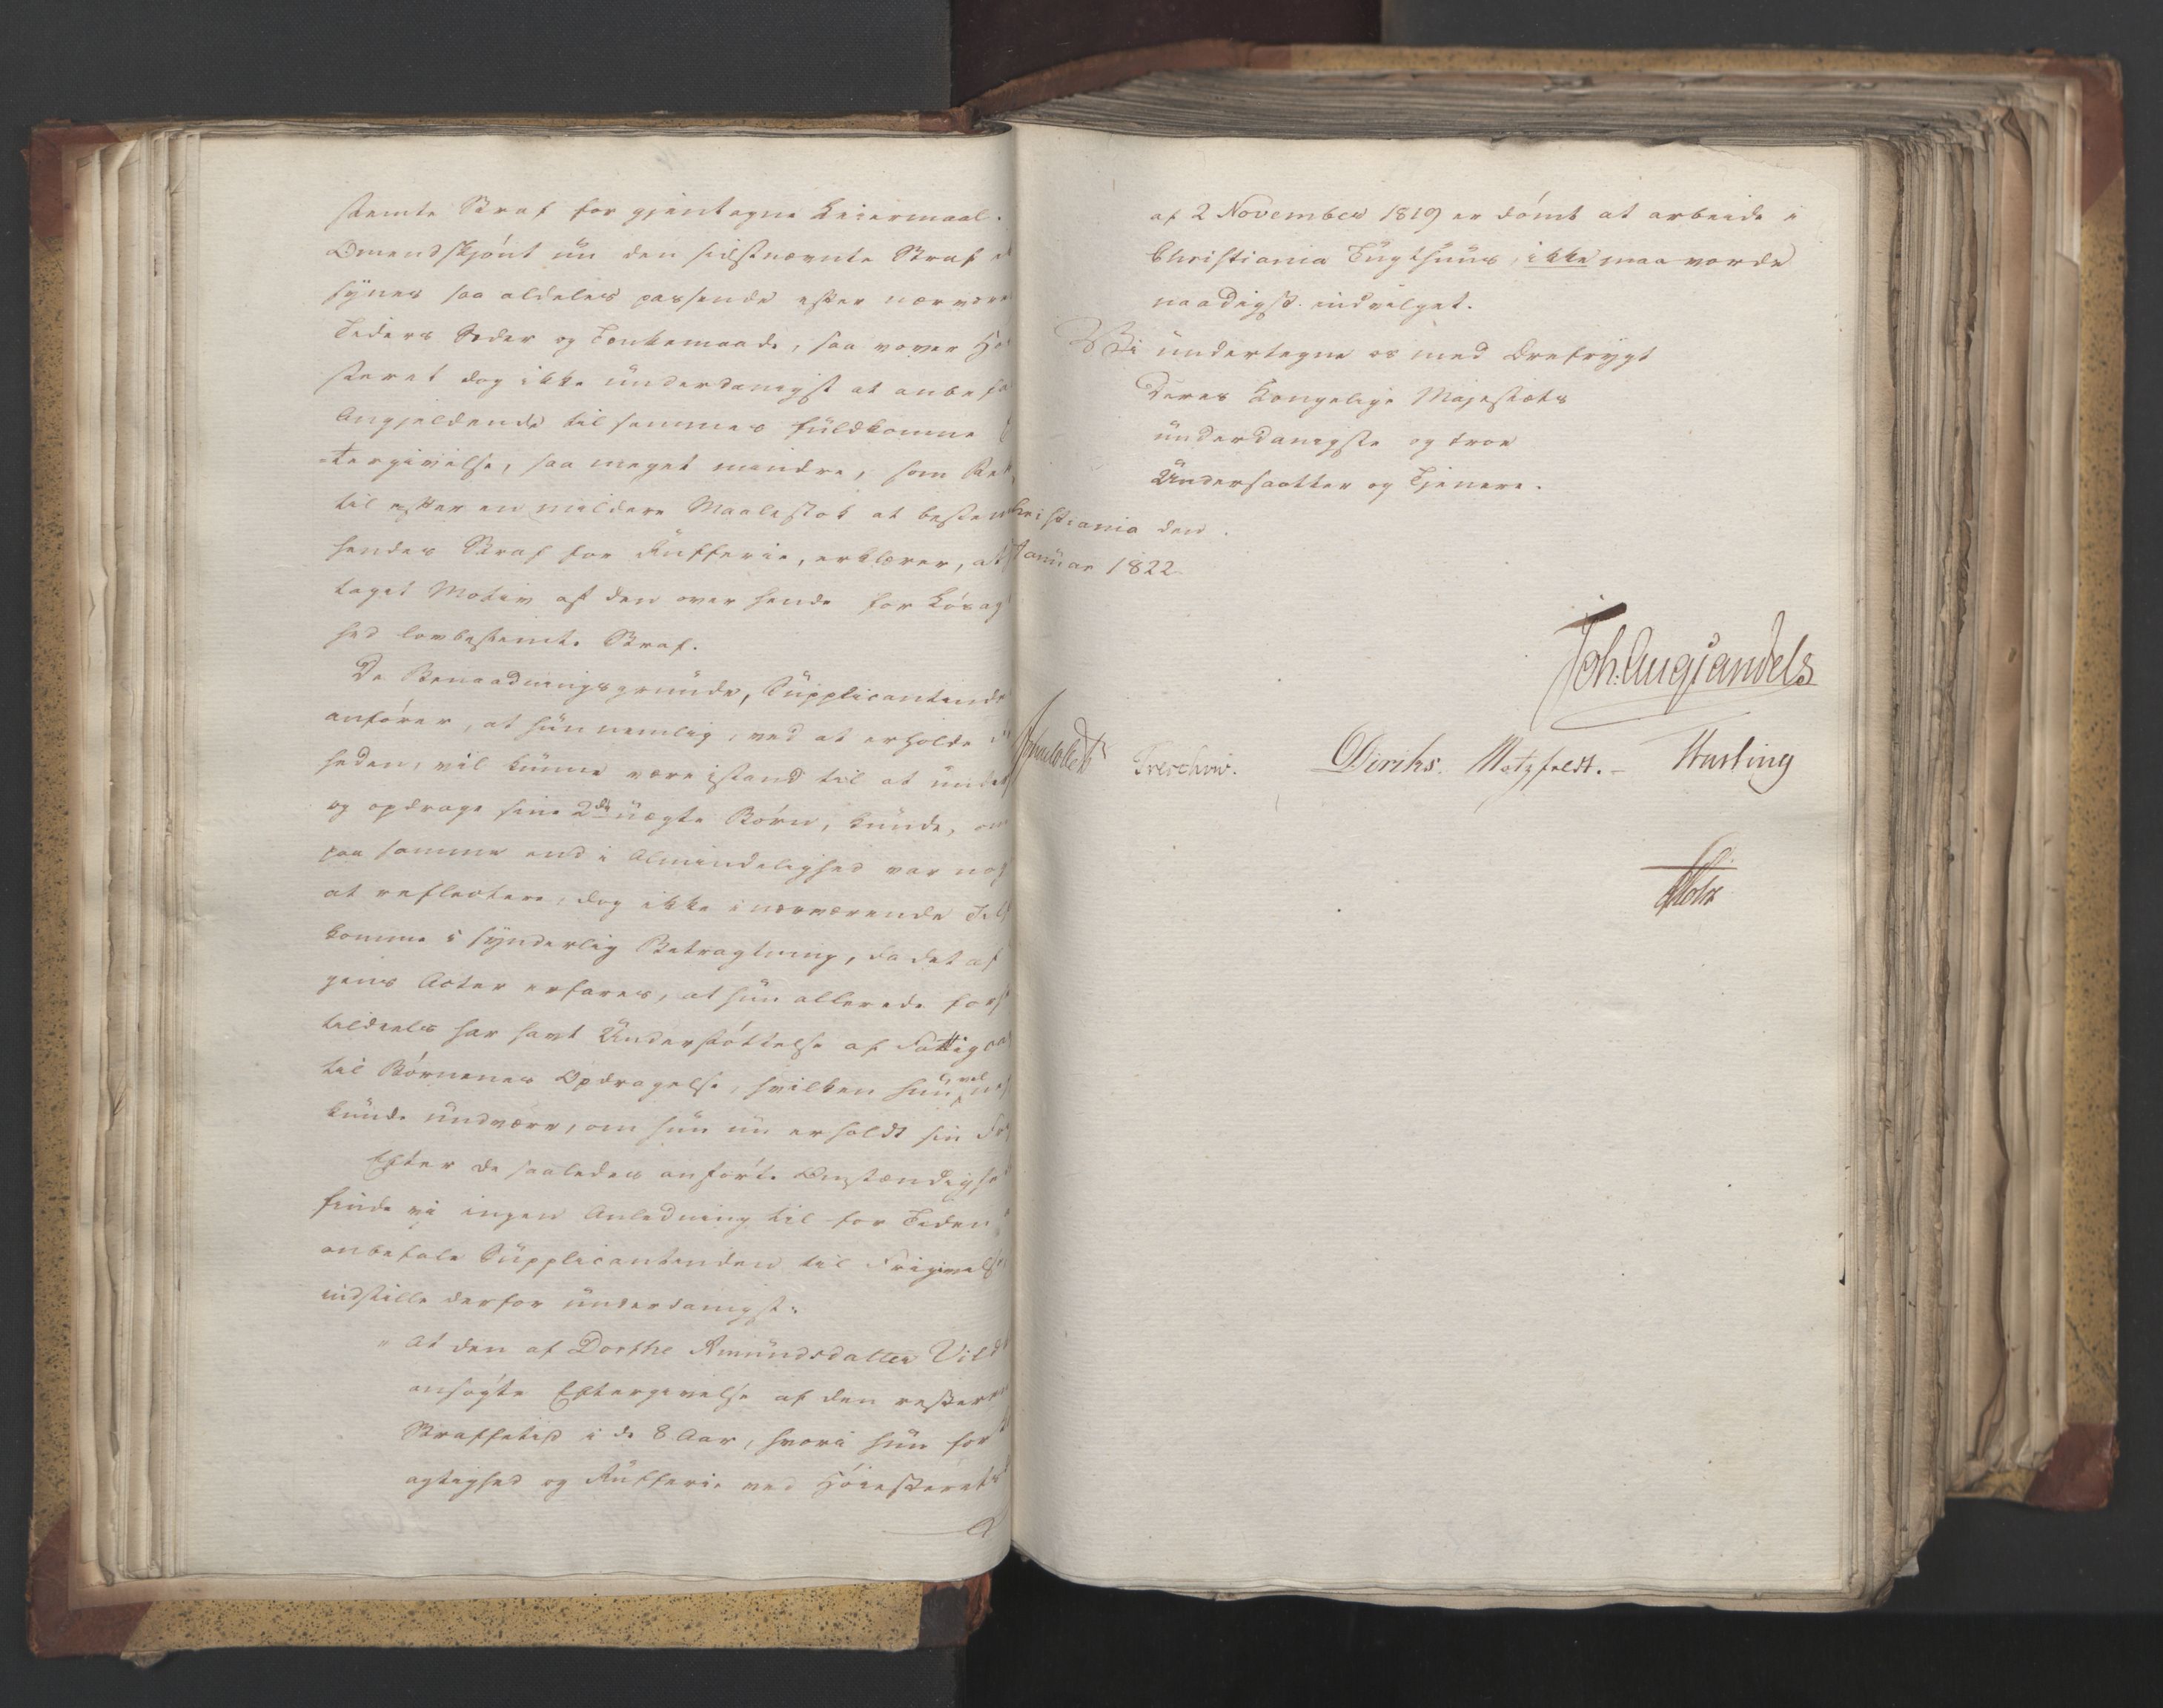 stemte Straf for gjentagne Leiermaal.
Omendskjønt nu den sidstnævnte Straf ei
synes saa aldeles passende efter nærvære
Tiders Sæder og Tænkemaade, saa vover Høi
steret dog ikke underdanigst at anbefa
Angjeldende til sammes fuldkomne
-tergivelse, saa meget mindre, som Ret
til efter en mildere Maalestok at bestem
hendes Straf for Rufferie, erklærer, at
taget Motiv af den over hende for Løsag
hed lovbestemte Straf.
De Benaadningsgrunde, Supplicantinde
anfører, at hun nemlig, ved at erholde
heden, vil kunne være istand til at under
og opdrage sine 2de uægte Børn, kunde, om
paa samme end i Almindelighed var nog
at reflectere, dog ikke i nærværende Tilf
komme i synderlig Betragtning, da det af
gens Acter erfares, at hun allerede forh
tildeels har havt Understøttelse af Fattigva
til Børnenes Opdragelse, hvilken hun vel
kunde undvære, om hun nu erholdt sin
Efter de saaledes anførte Omstændighe
finde vi ingen Anledning til for Tiden
anbefale Supplicantinden til Frigivelse
indstille derfor underdanigst:
" At den af Dorthe Amundsdatter Vild
ansøgte Eftergivelse af den resteren
Straffetid i de 8 Aar, hvori hun for
agtighed og Rufferie ved Høiesterets
af 2 November 1819 er dømt at arbeide i
Christiania Tugthuus, ikke maa vorde
naadigst indvilget.
Vi undertegne os med Ærefrygt
Deres Kongelige Majestæts
underdanigste og troe
Undersaatter og Tjenere.
Christiania den
Januar 1822
Joh. Aug Sandels
Treschow. Diriks. Motzfeldt. Hasling